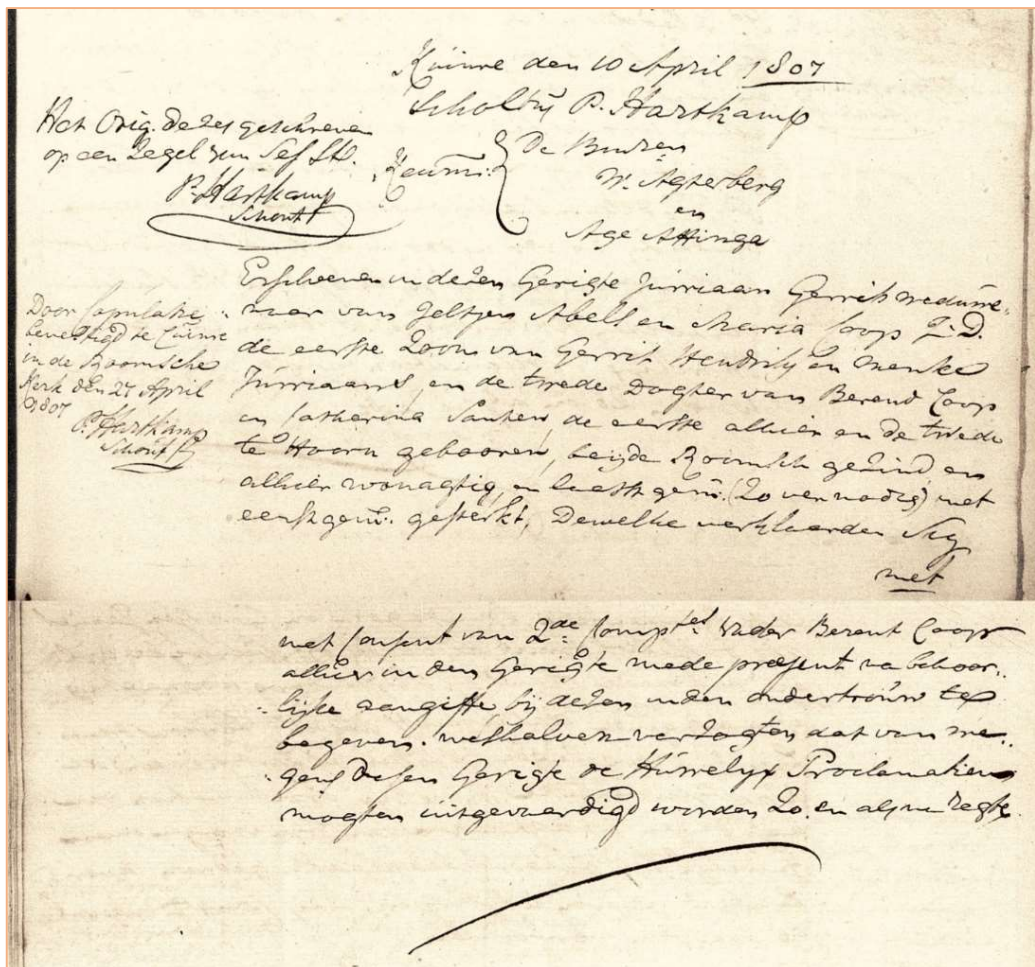 Kuinre den 10 April 1807
Scholtus P. Hartkamp
Keurn:
De Burgers
W. Agterberg
en
Age Attinga
Het Orig. dezes geschreven
op een Zegel van Ses St.
P. Hartkamp
Schout
Door Copulatie
bevestigd te Cuinre
in de Roomsche
Kerk den 27 April
1807
P. Hartkamp
Schout
Erschenen in dezen Gerigte Jurriaan Gerrits weduwe-
naar van Geltjen Abels en Maria Coops J:D.
de eerste Zoon van Gerrit Hendriks en Menke
Jurriaans, en de twede Dogter van Berend Coops
en Catharina de eerste alhier en de twede
te Hoorn gebooren, beijde Roomsch gezind en
alhier wonagtig, en laatst gem. (zo ver nodig) met
eerstgem. gesterkt, Dewelke verklaarden Sig
met
met Consent van 2de Compten Vader Berent Coops
alhier in den Gerigte mede present na behoor-
lijke aangiffte, bij dezen in den ondertrouw te
begeven. weshalven verzogten dat van we-
gens desen Gerigte de Huwelyx Proclamatien
mogten uitgevaardigd worden Zo. en als na regte.